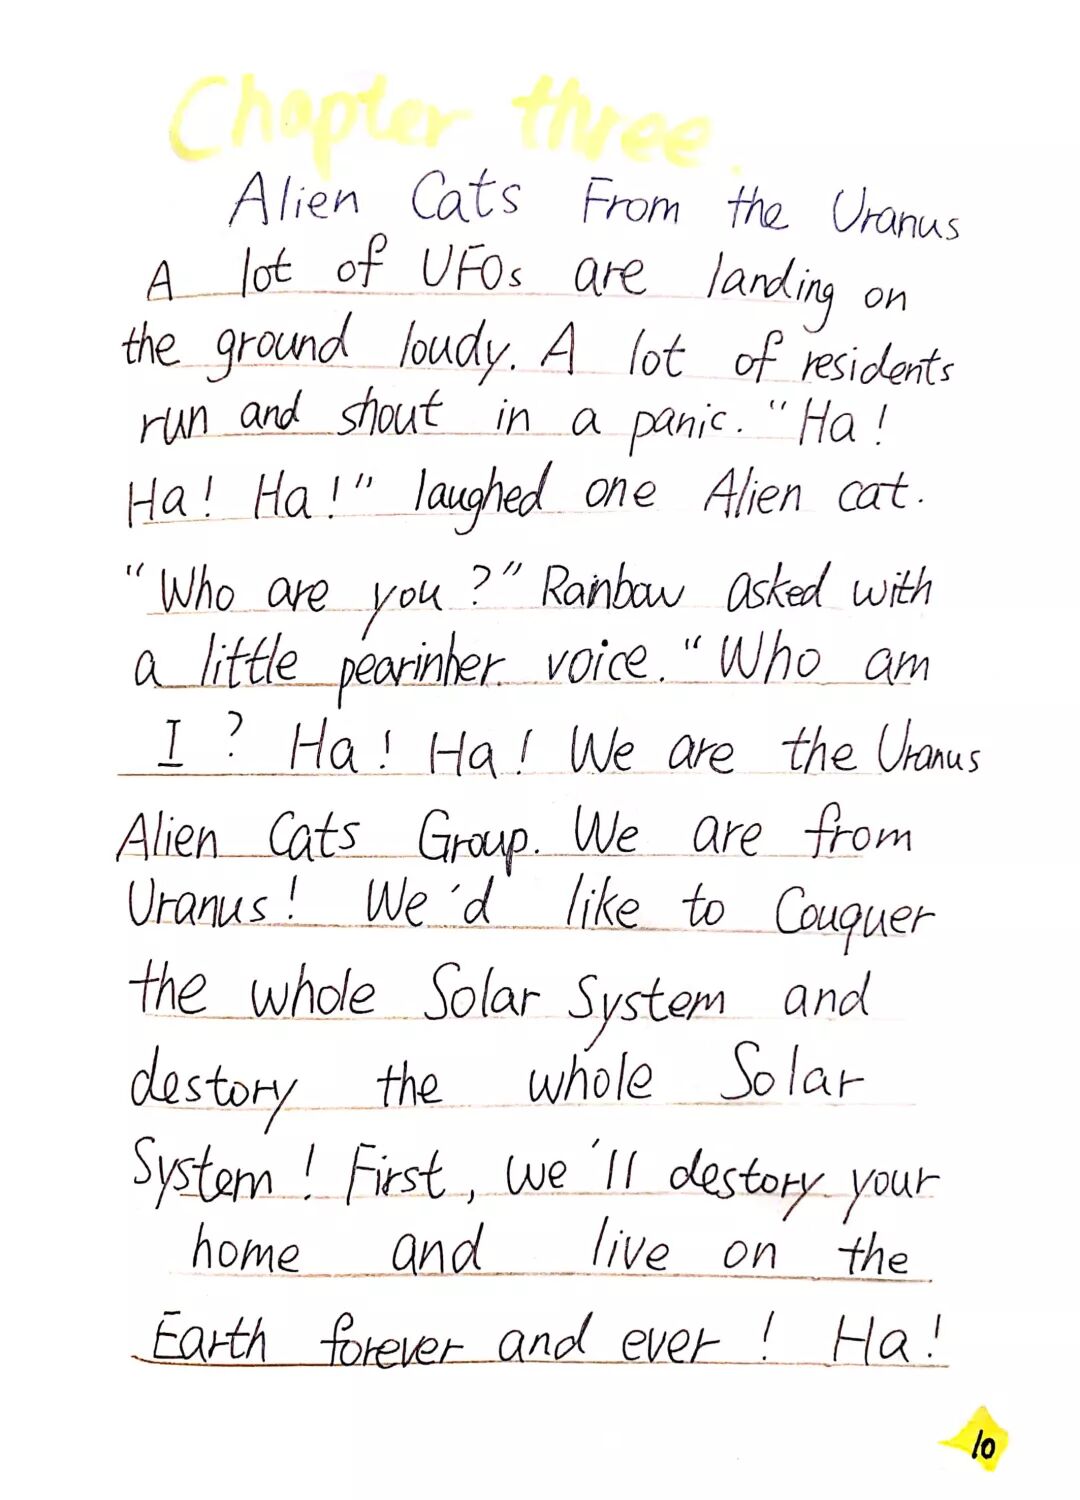 Chapter three.
Alien Cats From the Uranus
A lot of UFOs are landing on
the ground loudy. A lot of residents
run and shout in a panic. "Ha!
Ha! Ha!" laughed one Alien cat.
"Who are you?" Rainbow asked with
a little pearinher voice. "Who am
I? Ha! Ha! We are the Uranus
Alien Cats Group. We are from
Uranus! We'd like to Couquer
the whole Solar System and
destory the whole Solar
System! First, we'll destory your
home and live on the
Earth forever and ever! Ha!
10